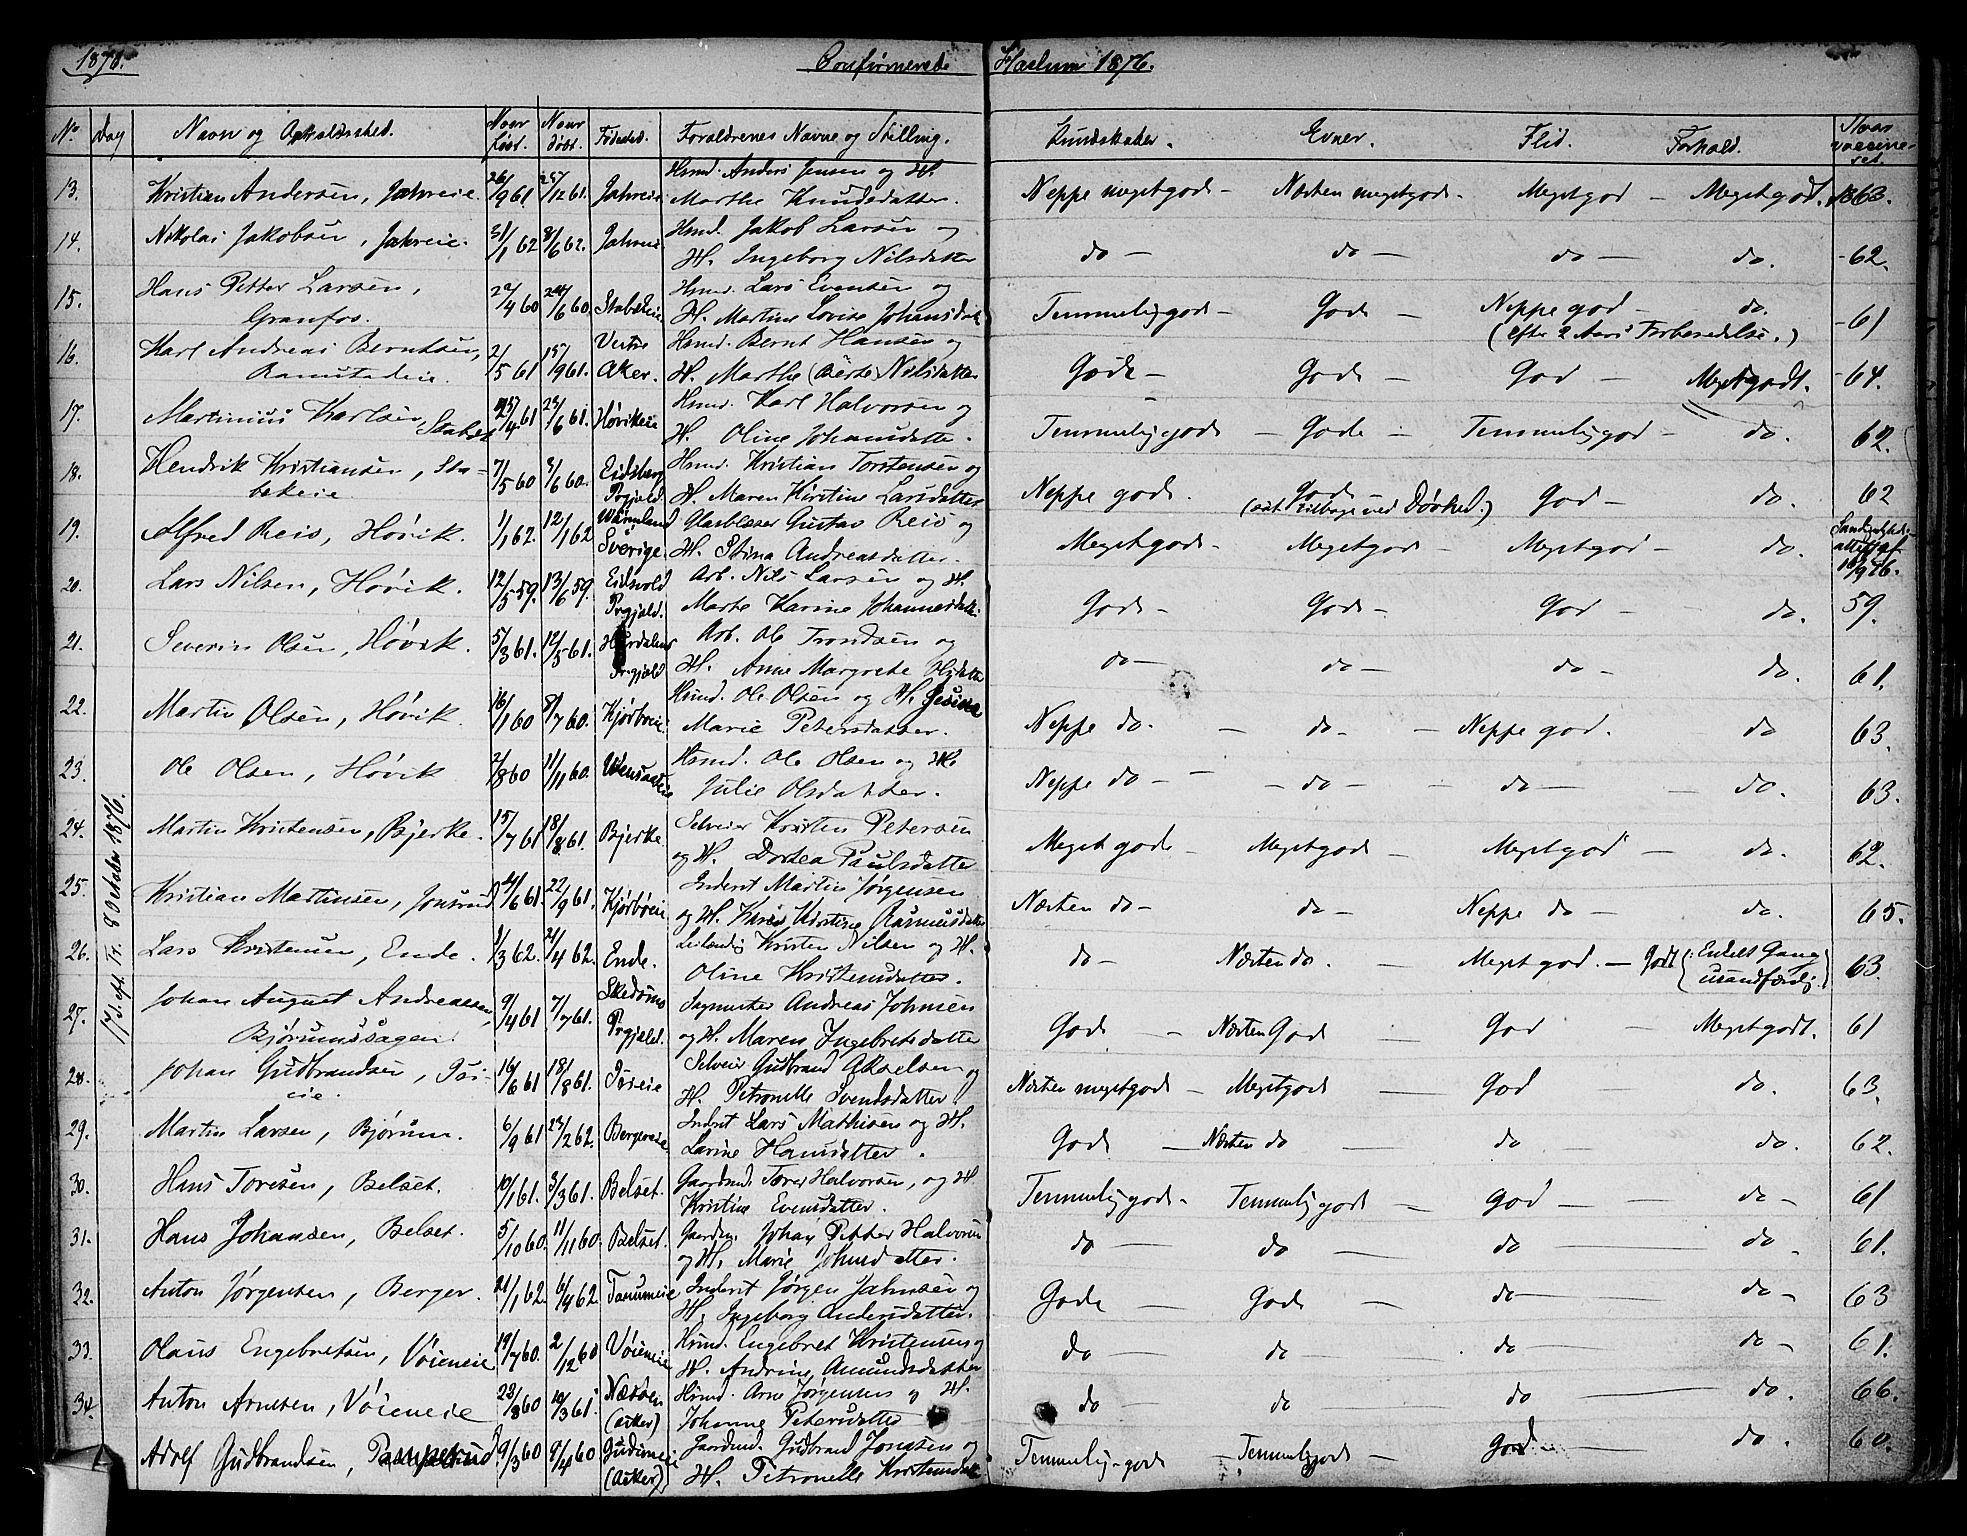 1876.
Confirmerede Haslum 1876.
No. Dag Navn og Opholdssted. Naar født. Naar døbt. Fødested. Forældrenes Navne og Stilling. Kundskaber. Evner. Flid. Forhold. Naar vaccineret.
17 S. eft. Tr. 8 October 1876.
13. Kristian Andersen, Jahreie. 26/9 61. 25/12 61. Jahreie Hsmd. Anders Jensen og H.
Marthe Knudsdatter. Neppe megetgode Næsten megetgode - Megetgod - Megetgodt. 1863.
14. Nikolai Jakobsen, Jahreie. 31/1 62 8/6 62. Jahreie Hsmd. Jakob Larsen og
H. Ingeborg Nilsdatter do - do - do - do. - 62.
15. Hans Petter Larsen, 22/4 60 24/6 60. Stabækeie Hsmd. Lars Evensen og
Granfos. H. Martine Lovise Johansdat. Temmeliggode - Gode - Neppe god - do. - 61
(efter 2 Aars Forberedelse.)
16. Karl Andreas Berntsen, 2/5 61 15/9 61. Vestre Aker. Hsmd. Bernt Hansen og
Ramstadeie. H. Marthe (Berte) Nilsdatter Gode - Gode - God - Megetgodt. - 64.
17. Martinius Karlsen Stabæk 25/4 61 23/6 61. Høvikeie Hsmd. Karl Halvorsen og
H. Oline Johansdatter. Temmeliggode - Gode - Temmeliggod - do. 62.
18. Hendrik Kristiansen, Sta- 7/5 60 3/6 60. Eidsberg Prgjeld. Hsmd. Kristian Torstensen og
bekeie H. Maren Kirstine Larsdatter Neppe gode. gode God - do. 62
19. Alfred Reis, Høvik. 1/1 62. 12/1 62 Wärmland Sverige. Glasblæser Gustav Reis og
H. Stina Andreasdatter. Megetgode - Megetgode - Megetgod - do. 18/9 76.
20. Lars Nilsen, Høvik. 12/5 59. 13/6 59. Eidsvold Prgjeld. Arb. Nils Larsen og H.
Marte Karine Johannesdatter Gode - Gode - God - do. 59.
21. Severin Olsen, Høvik. 5/3 61. 12/5 61. Hurdalens Prgjeld Arb. Ole Trondsen og
H. Anne Margrete Olsdatter do - do - do - do. 61.
22. Martin Olsen, Høvik. 16/1 60 8/7 60. Kjørboeie. Hsmd. Ole Olsen og H. Gesine
Marie Petersdatter. Neppe do. - do. - Neppe god. do 63.
23. Ole Olsen, Høvik 2/8 60 11/11 60. Hsmd. Ole Olsen og H.
Julie Olsdatter. Neppe do - - do - - do - - do. 63.
24. Martin Kristensen, Bjerke. 15/7 61 18/8 61. Bjerke Selveier Kristen Petersen
og H. Dortea Paulsdatter Meget gode - Megetgode - Megetgod - do. 62.
25. Kristian Martinsen, Jonsrud 24/6 61. 22/9 61. Kjørboeie Inderst Martin Jørgensen
og H. Karen Kirstine Rasmusdatter Næsten do - do - Neppe do - do. 65.
26. Lars Kristensen, Ende. 1/3 62. 21/4 62. Ende. Leilændig Kristen Nilsen og H.
Oline Kristensdatter. do - Næsten do. - Megetgod. - Godt (: Enkelt Gang usandfærdig.) 63.
27. Johan August Andreassen, 9/4 61 7/7 61. Skedsmo Prgjeld. Sagmester Andreas Johnsen
Bjørumssagen. og H. Maren Ingebretsdatter Gode - Næsten Gode - God - Megetgodt. 61
28. Johan Gudbrandsen, Isi- 16/6 61 18/8 61. Isieie Selveier Gudbrand Akselsen og
eie. H. Petronelle Svendsdatter. Næsten megetgode - Megetgode - God - do. 63.
29. Martin Larsen, Bjørum. 6/9 61 23/2 62. Bergereie Inderst Lars Mathisen og H.
Larine Hansdatter. Gode - Næsten do - do - do. 62.
30. Hans Toresen, Belset. 10/1 61. 3/3 61. Belset. Gaardmd. Tore Halvorsen, og H
Kristine Evensdatter. Temmeliggode - Temmeliggode - God - do - 61
31. Hans Johansen, Belset. 5/10 60. 11/11 60. Belset. Gaardm. Johan Petter Halvorsen
og H. Marie Johnsdatter. do - do - do - do - 61.
32. Anton Jørgensen, Berger. 21/1 62. 6/4 62 Tanumeie Inderst Jørgen Jahnsen og
H. Ingeborg Andersdatter. Gode - Gode - do - do - 63
33. Olaus Engebretsen, Vøieneie 19/7 60. 2/12 60 Vøieneie Hsmd. Engebret Kristensen og
H. Andrine Amundsdatter do - do - do - do - 61.
34. Anton Arnesen, Vøieneie 23/8 60 10/3 61. Næsøen (Asker) Hsmd. Arne Jørgensen og H.
Johanne Petersdatter do - do - do - do. 66.
Adolf Gudbrandsen, 9/3 60 9/4 60 (Asker) Gaardmd. Gudbrand Jonsen og
H. Petronelle Kristensdat. Temmelig-gode - Temmeliggode - God - do. 60.